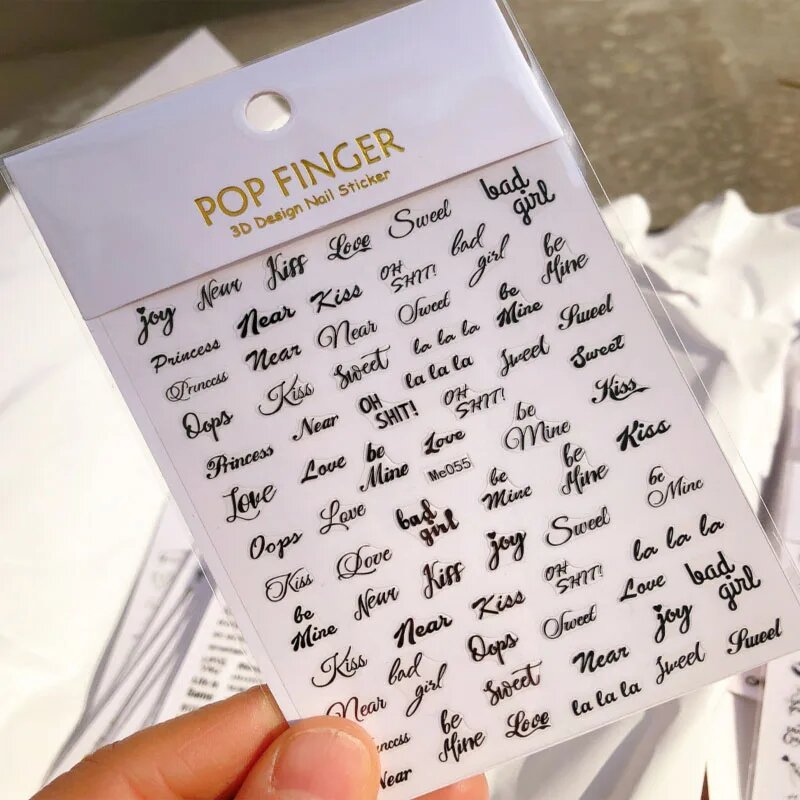 POP FINGER
3D Design Nail Sticker
joy Near Kiss Love Sweet bad girl
Princess Near Kiss OH SHIT! bad girl be Mine
Princess Near Near Sweet be Mine Sweet
Oops Kiss Sweet la la la Sweet Sweet
Princess Near OH SHIT! la la la OH SHIT! Kiss
Love Love be Mine Love be Mine Kiss
Oops Love Me055 be Mine be Mine be Mine
Kiss Love bad girl joy Sweet la la la
be Mine Near Kiss Kiss OH SHIT! Love bad girl
Kiss Near Oops Sweet joy
Near bad girl Sweet Near Sweet Sweet
be Mine Love la la la
Near